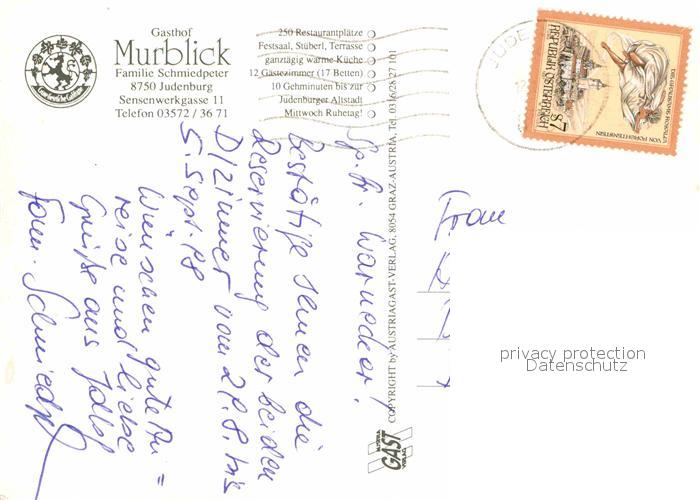 Gasthof
Murblick
Familie Schmiedpeter
8750 Judenburg
Sensenwerkgasse 11
Telefon 03572 / 36 71
250 Restaurantplätze
Festsaal, Stüberl, Terrasse
ganztägig warme Küche
12 Gästezimmer (17 Betten)
10 Gehminuten bis zur
Judenburger Altstadt
Mittwoch Ruhetag!
Sg. Fr. Warneder!
Bestätige Ihnen die
Reservierung der beiden
DZimmer vom bis
5. Sept.
Wünschen gute An=
reise und liebe
Grüße aus
Fam.
COPYRIGHT by AUSTRIAGAST-VERLAG, 8054 GRAZ-AUSTRIA, Tel. 0316/28 27 101
AUSTRIA
GAST
VERLAG
JUDE
REPUBLIK ÖSTERREICH
S7
VON FORCHTENSTEIN
Frau
privacy protection
Datenschutz